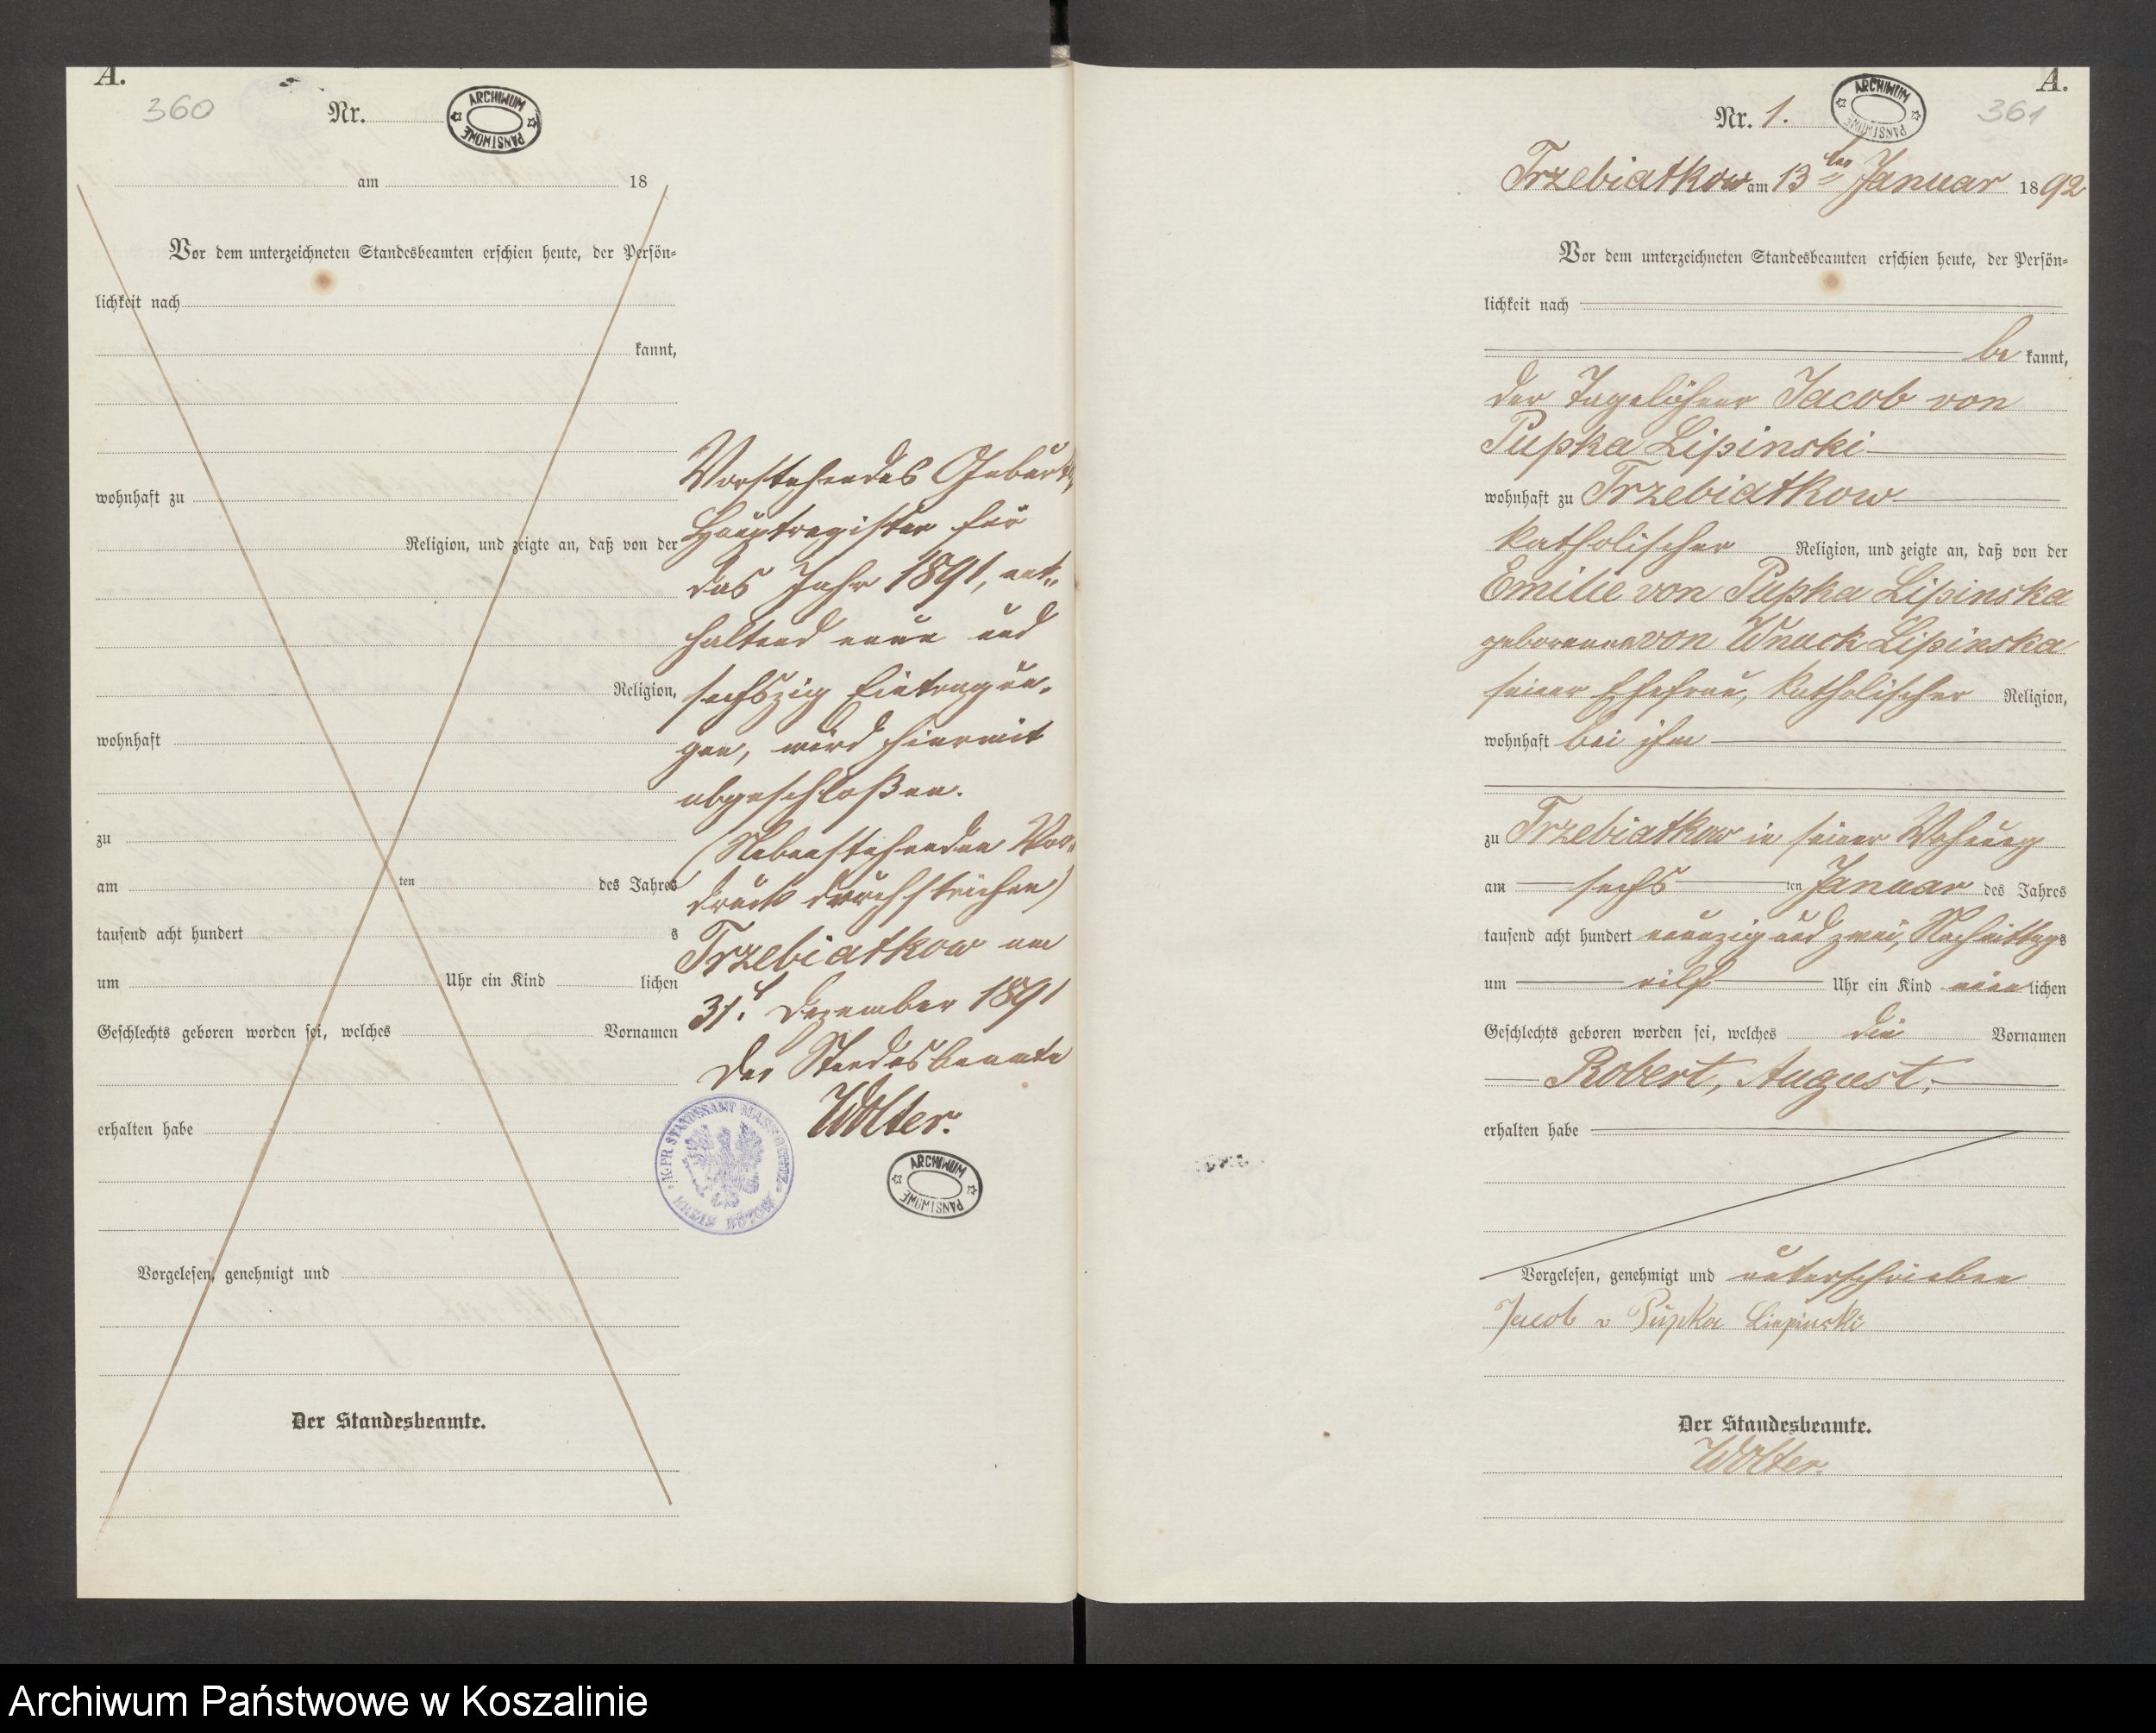 A.
360
Nr.
ARCHIWUM PAŃSTWOWE
am 18
Vor dem unterzeichneten Standesbeamten erschien heute, der Persön-
lichkeit nach
kannt,
wohnhaft zu
Religion, und zeigte an, daß von der
Religion,
wohnhaft
zu
am ten des Jahres
tausend acht hundert s
um Uhr ein Kind lichen
Geschlechts geboren worden sei, welches Vornamen
erhalten habe
Vorgelesen, genehmigt und
Der Standesbeamte.
Vorstehendes Geburts-
Hauptregister für
das Jahr 1891, ent-
haltend neun und
sechszig Eintragun-
gen, wird hiermit
abgeschloßen.
(Nebenstehenden Vor-
druck durchstrichen)
Trzebiatkow am
31t. Dezember 1891
Der Standesbeamte
Wolter.
K. PR. STANDESAMT MASSOWITZ
KREIS BÜTOW
ARCHIWUM PAŃSTWOWE
A.
361
Nr. 1.
ARCHIWUM PAŃSTWOWE
Trzebiatkow am 13ten Januar 1892
Vor dem unterzeichneten Standesbeamten erschien heute, der Persön-
lichkeit nach
be kannt,
der Tagelöhner Jacob von
Pupka Lipinski
wohnhaft zu Trzebiatkow
katholischer Religion, und zeigte an, daß von der
Emilie von Pupka Lipinska
geborenen von Wnuck Lipinska
seiner Ehefrau, katholischer Religion,
wohnhaft bei ihm
zu Trzebiatkow in seiner Wohnung
am sechs ten Januar des Jahres
tausend acht hundert neunzig und zwei, Nachmittags
um eilf Uhr ein Kind männlichen
Geschlechts geboren worden sei, welches die Vornamen
Robert, August,
erhalten habe
Vorgelesen, genehmigt und unterschrieben
Jacob v Pupka Liepinski
Der Standesbeamte.
Wolter.
Archiwum Państwowe w Koszalinie